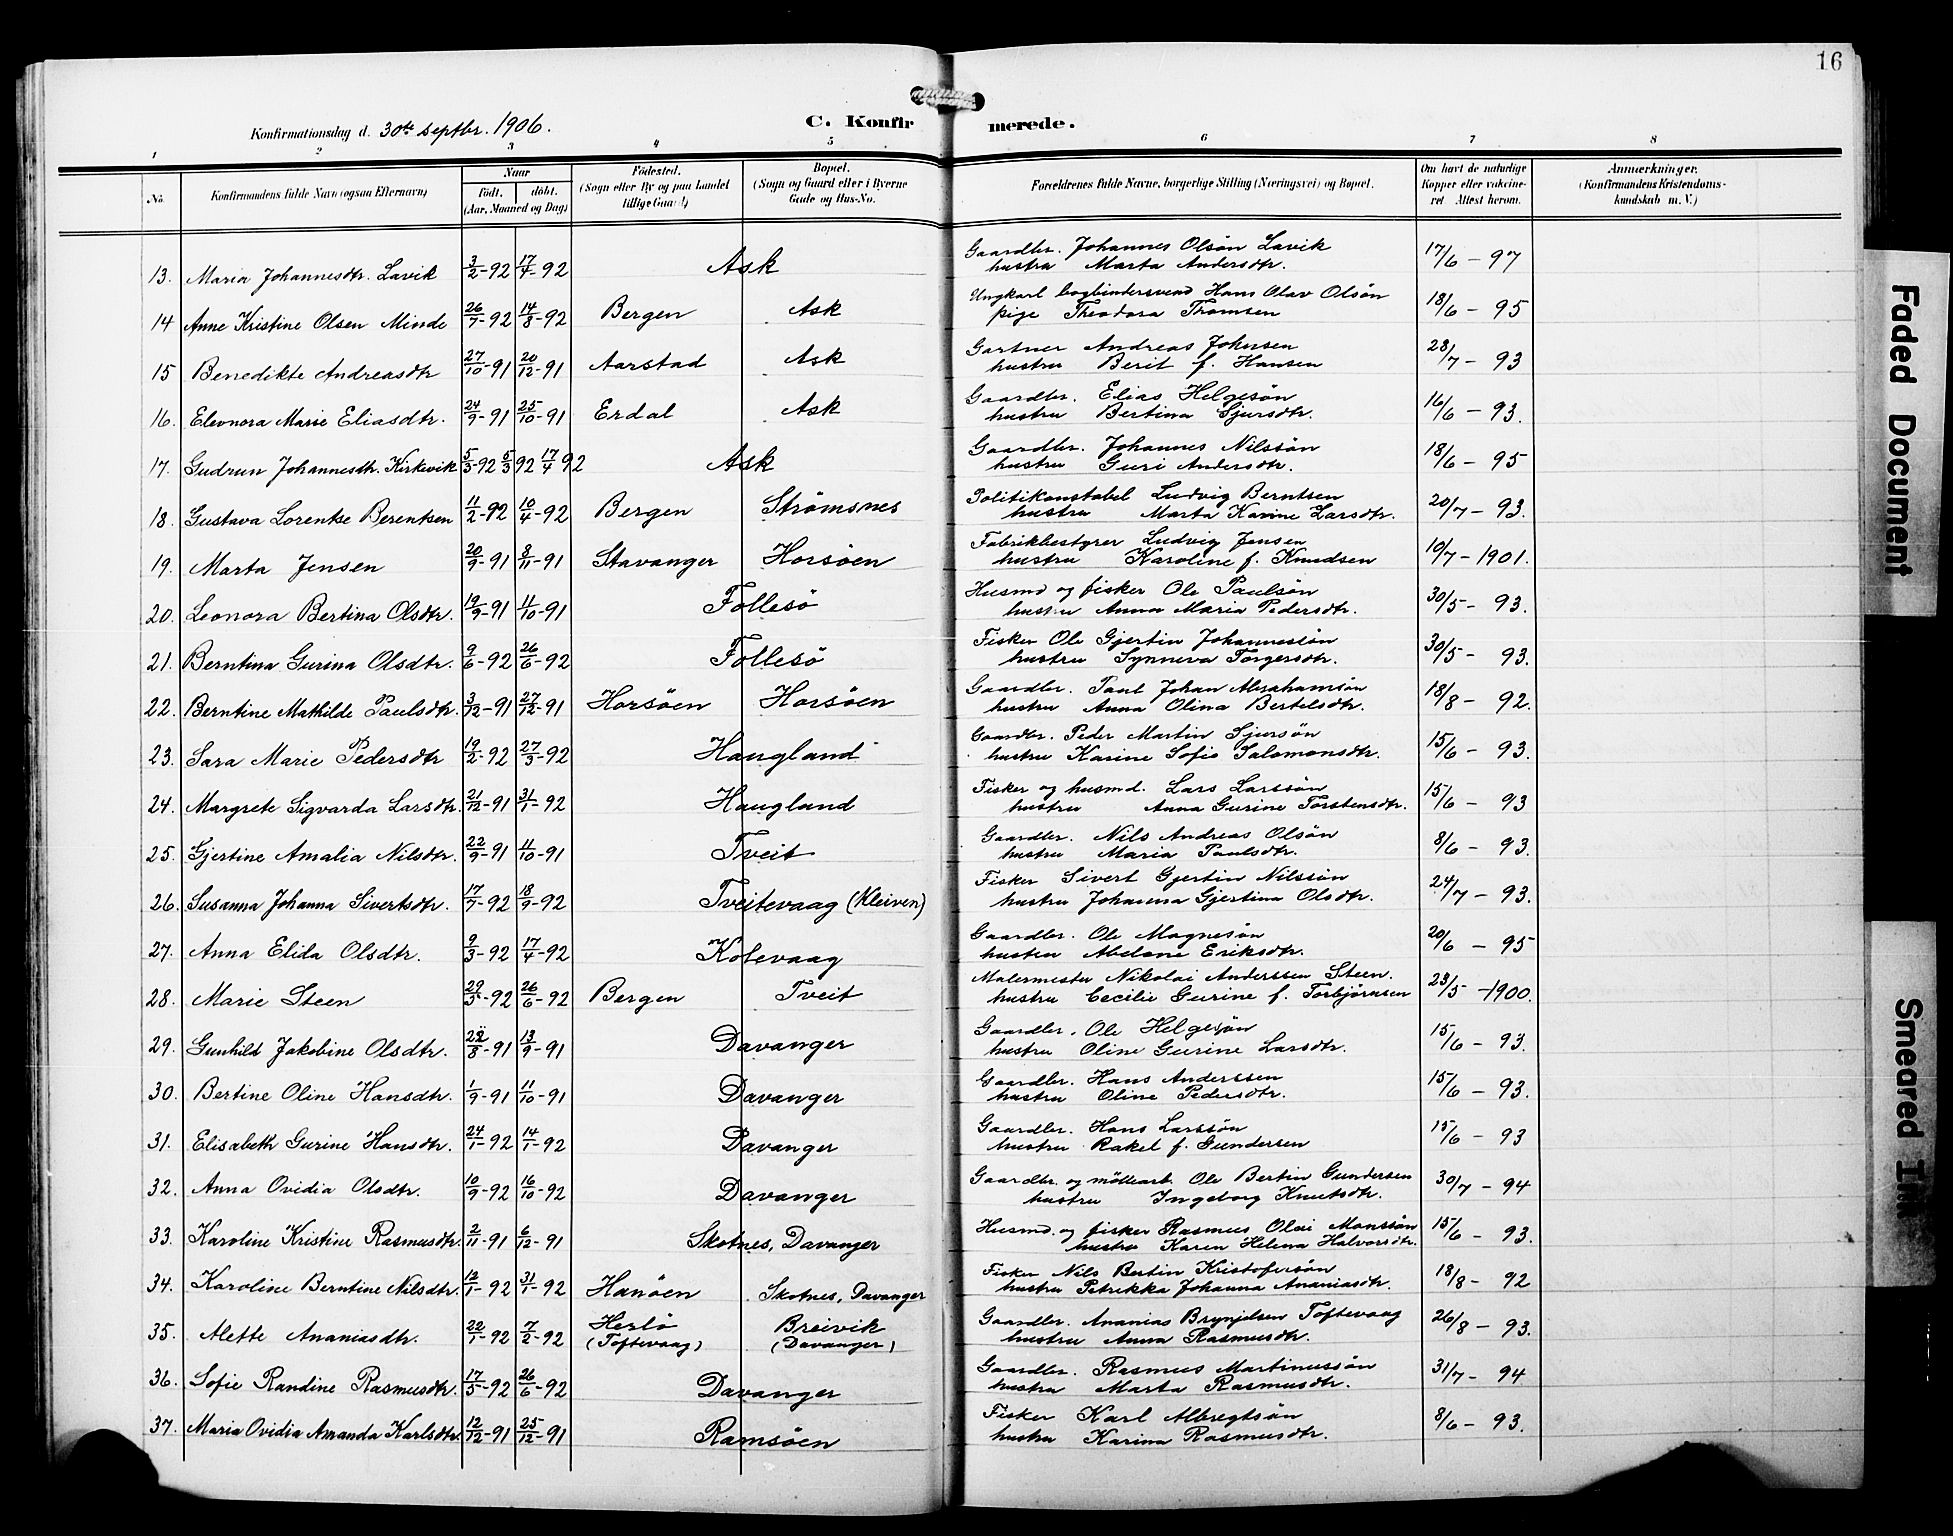 16
Konfirmationsdag d. 30te septbr. 1906.
C. Konfirmerede.
1 2 3 4 5 6 7 8
No.
Konfirmandens fulde Navn (ogsaa Efternavn)
Naar
födt. döbt.
(Aar, Maaned og Dag)
Födested.
(Sogn eller By og paa Landet
tillige Gaard)
Bopæl.
(Sogn og Gaard eller i Byerne
Gade og Hus-No.
Forældrenes fulde Navne, borgerlige Stilling (Næringsvei) og Bopæl.
Om havt de naturlige
Kopper eller vakcine-
ret Attest herom.
Anmærkninger.
(Konfirmandens Kristendoms-
kundskab m. V.)
13. Maria Johannesdtr. Lavik 3/2-92 17/4-92 Ask Gaardbr. Johannes Olsön Lavik 17/6 - 97
hustru Marta Andersdtr.
14 Anne Kristine Olsen Minde 26/7-92 14/8-92 Bergen Ask Ungkarl bogbindersvend Hans Olav Olsön 18/6 - 95
pige Theodora Thomsen
15 Benedikte Andreasdtr 27/10-91 20/12-91 Aarstad Ask Gartner Andreas Johnsen 28/7 - 93
hustru Berit f. Hansen
16. Eleonora Marie Eliasdtr. 24/9-91 25/10-91 Erdal Ask Gaardbr. Elias Helgesön 16/6 - 93.
hustru Bertina Sjursdtr.
17. Gudrun Johannesdtr. Kirkevik 5/3-92 5/3 92 17/4 92 Ask Gaardbr. Johannes Nilssön 18/6 - 95
hustru Guri Andersdtr.
18. Gustava Lorentse Berentsen 11/2-92 10/4-92 Bergen Strömsnes Politikonstabel Ludvig Berntsen 20/7 - 93.
hustru Marta Karine Larsdtr.
19. Marta Jensen 20/9-91 8/11-91 Stavanger Horsöen Fabrikbestyrer Ludvig Jensen 10/7 - 1901.
hustru Karoline f. Knudsen
20. Leonora Bertina Olsdtr. 19/9-91 11/10-91 Follesö Husmd og fisker Ole Paulsön 30/5 - 93.
hustru Anna Maria Pedersdtr.
21. Berntina Gurina Olsdtr. 9/6-92 26/6-92 Follesö Fisker Ole Gjertin Johannessön 30/5 - 93.
hustru Synneva Torgersdtr.
22. Berntine Mathilde Paulsdtr. 3/12-91 27/12-91 Horsöen Horsöen Gaardbr. Paul Johan Abrahamsön 18/8 - 92.
hustru Anna Olina Bertelsdtr.
23. Sara Marie Pedersdtr 19/2-92 27/3-92 Haugland Gaardbr. Peder Martin Sjursön 15/6 - 93.
hustru Karine Sofie Salamonsdtr.
24. Margrete Sigvarda Larsdtr. 21/12-91 31/1-92 Haugland Fisker og husmd. Lars Larssön 15/6 - 93
hustru Anna Gurine Torstensdtr.
25. Gjertine Amalia Nilsdtr. 22/9-91 11/10-91 Tveit Gaardbr. Nils Andreas Olsön 8/6 - 93.
hustru Maria Paulsdtr.
26. Susanna Johanna Sivertsdtr. 17/7-92 18/9-92 Tveitevaag (Kleiven) Fisker Sivert Gjertin Nilssön 24/7 - 93.
hustru Johanna Gjertina Olsdtr.
27. Anna Elida Olsdtr. 9/3-92 17/4-92 Kolevaag Gaardbr. Ole Magnesön 20/6 - 95
hustru Abelone Eriksdtr.
28. Marie Steen 29/5-92 26/6-92 Bergen Tveit Malermester Nikolai Anderssen Steen. 23/5 - 1900.
hustru Cecilie Gurine f. Torbjörnsen
29. Gunhild Jakobine Olsdtr. 22/8-91 13/9-91 Davanger Gaardbr. Ole Helgesön 15/6 - 93.
hustru Oline Gurine Larsdtr.
30. Bertine Oline Hansdtr. 1/9-91 11/10-91 Davanger Gaardbr. Hans Anderssen 15/6 - 93.
hustru Oline Pedersdtr.
31. Elisabeth Gurine Hansdtr. 24/1-92 14/1-92 Davanger Gaardbr. Hans Larssön 15/6 - 93
hustru Rakel f. Gundersen
32. Anna Ovidia Olsdtr. 10/9-92 16/10-92 Davanger Gaardbr. og möllearb. Ole Bertin Gundersen 30/7 - 94
hustru Ingeborg Knutsdtr.
33. Karoline Kristine Rasmusdtr. 2/11-91 6/12-91 Skotnes, Davanger Husmd. og fisker Rasmus Olai Monssön 15/6 - 93.
hustru Karen Helena Halvorsdtr.
34. Karoline Berntine Nilsdtr. 12/1-92 31/1-92 Hanöen Skotnes, Davanger Fisker Nils Bertin Kristofersön 18/8 - 92
hustru Petrikke Johanna Ananiasdtr.
35. Alette Ananiasdtr. 22/1-92 7/2-92 Herlö (Toftevaag) Breivik (Davanger) Gaardbr. Ananias Brynjelsen Toftevaag 26/8 - 93.
hustru Anna Rasmusdtr.
36. Sofie Randine Rasmusdtr. 17/5-92 26/6-92 Davanger Gaardbr. Rasmus Martinussön 31/7 - 94
hustru Marta Rasmusdtr.
37. Maria Ovidia Amanda Karlsdtr. 12/12-91 25/12-91 Ramsöen Fisker Karl Albregtsön 8/6 - 93.
hustru Karina Rasmusdtr.
Faded Document
Smeared Ink